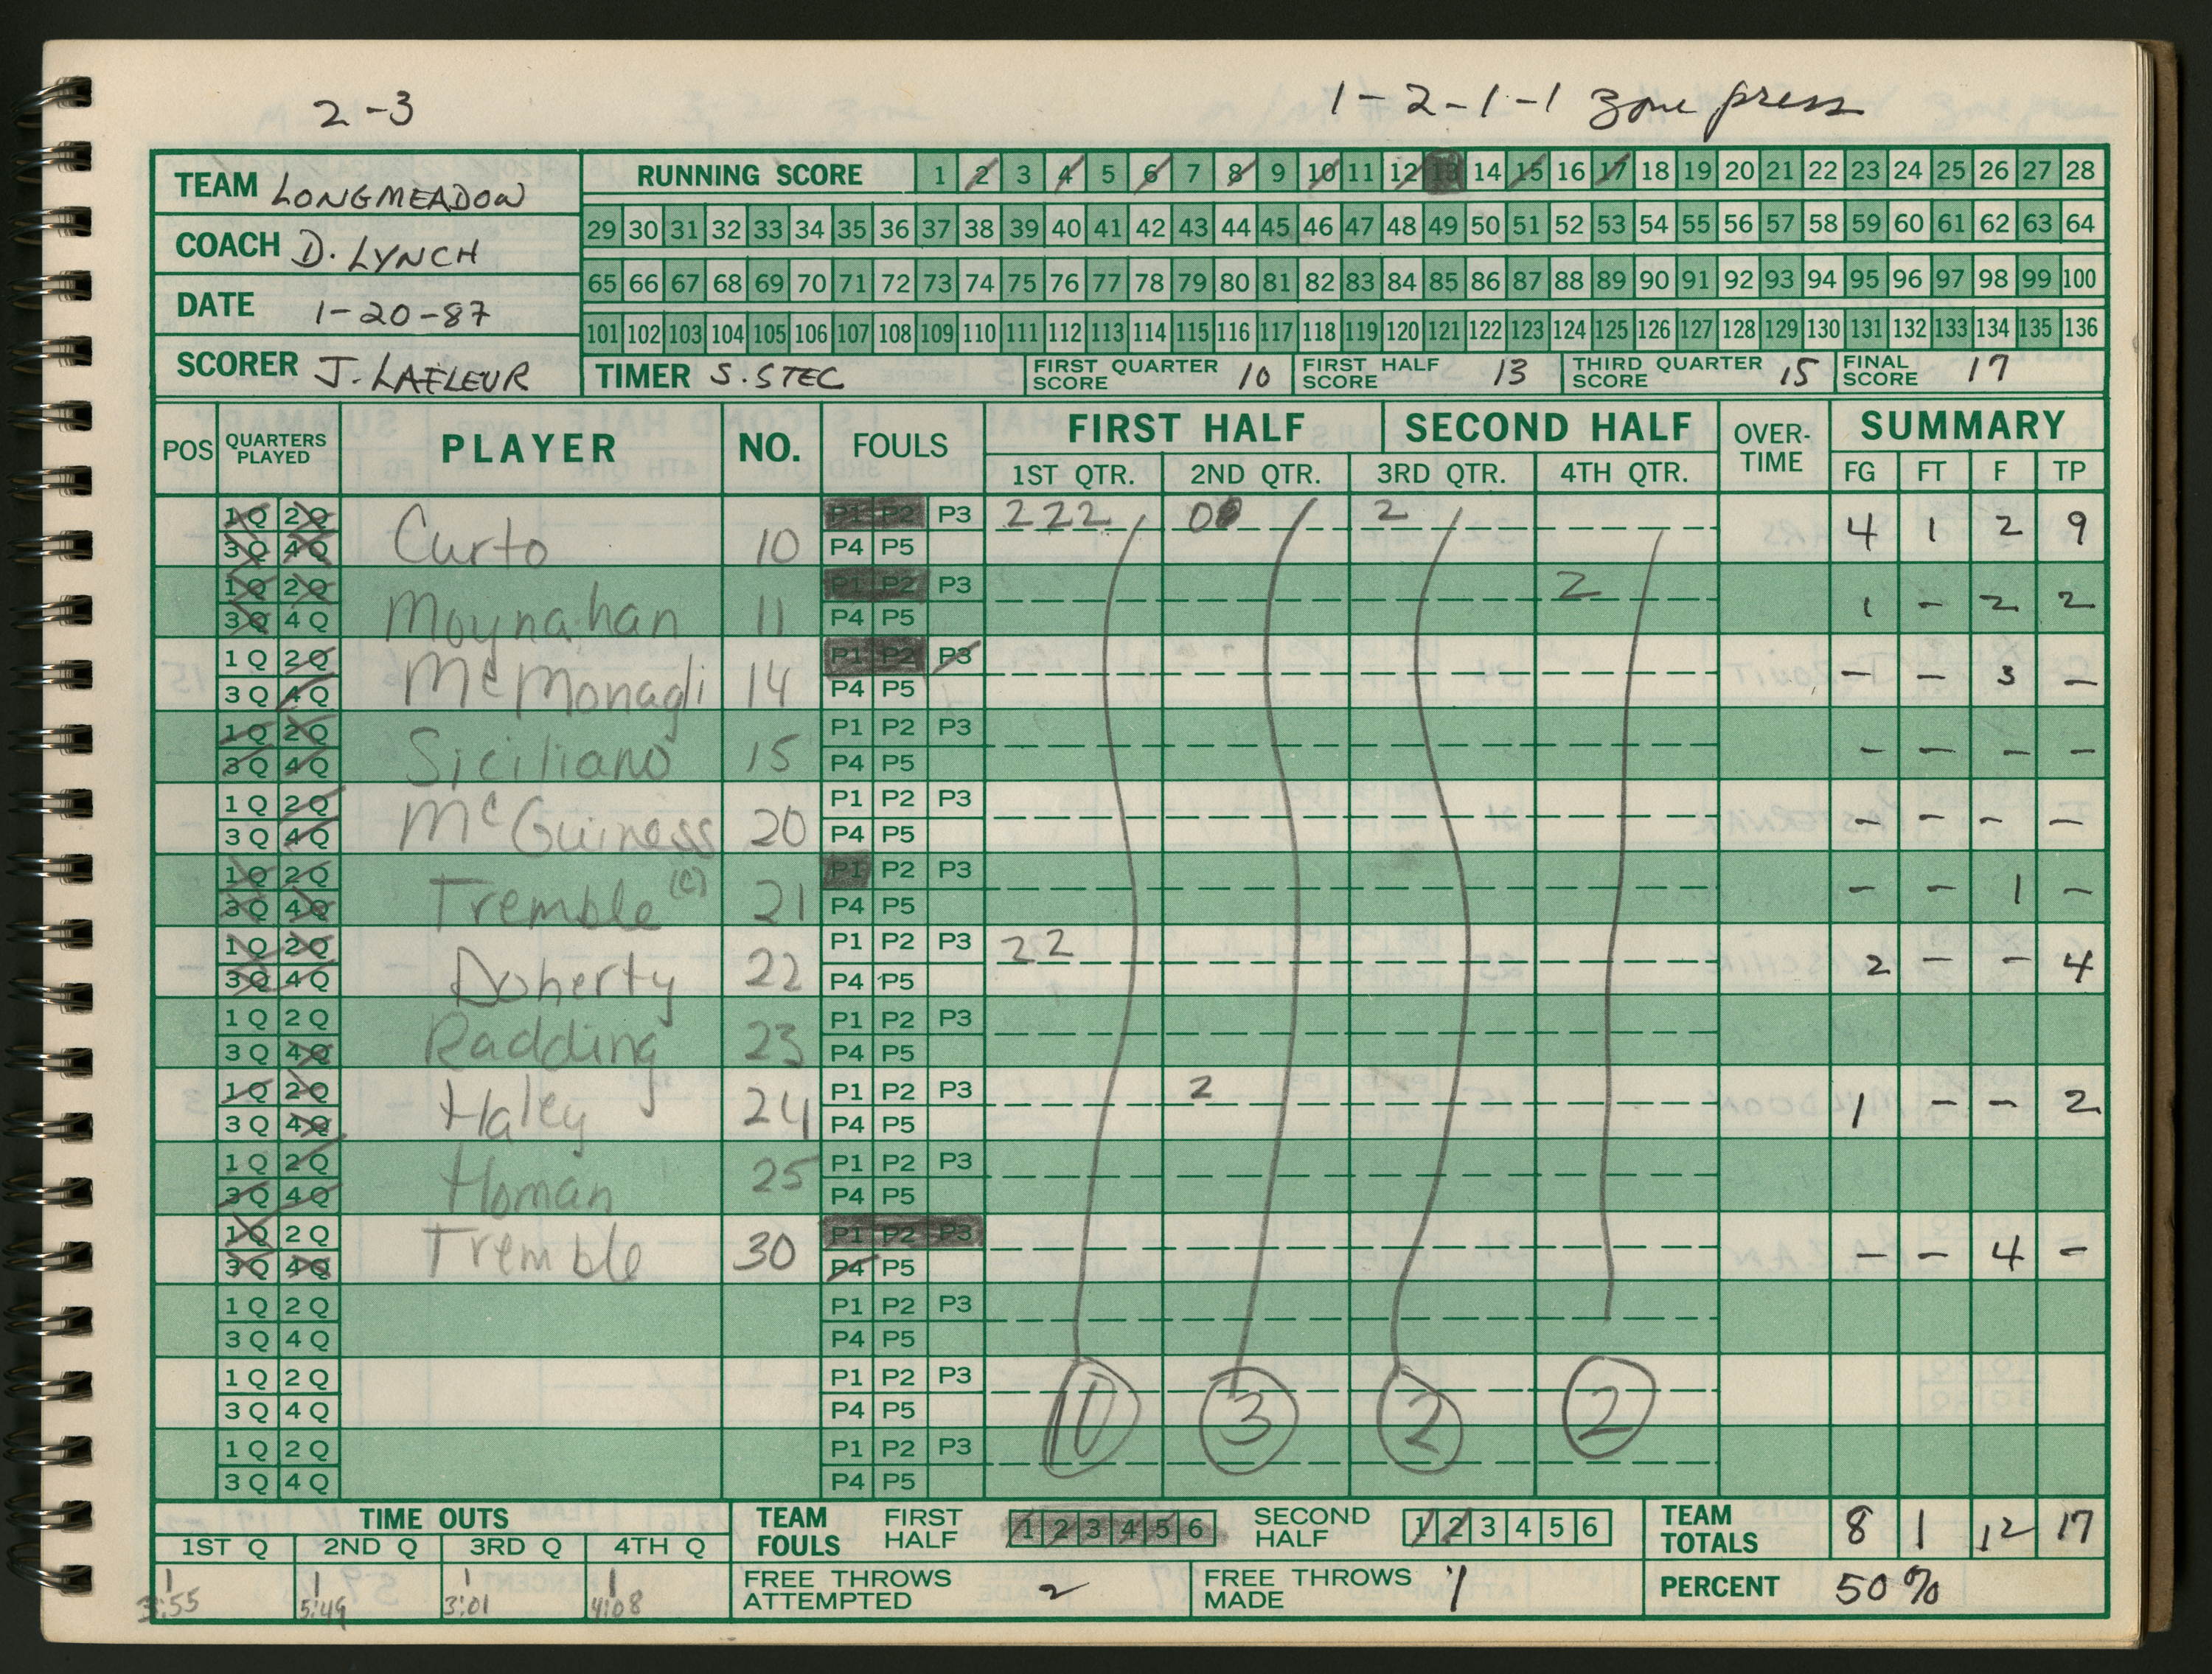 2-3 1-2-1-1 zone press
TEAM LONGMEADOW
COACH D. LYNCH
DATE 1-20-87
SCORER J. LAFLEUR
RUNNING SCORE 1 2 3 4 5 6 7 8 9 10 11 12 13 14 15 16 17 18 19 20 21 22 23 24 25 26 27 28
29 30 31 32 33 34 35 36 37 38 39 40 41 42 43 44 45 46 47 48 49 50 51 52 53 54 55 56 57 58 59 60 61 62 63 64
65 66 67 68 69 70 71 72 73 74 75 76 77 78 79 80 81 82 83 84 85 86 87 88 89 90 91 92 93 94 95 96 97 98 99 100
101 102 103 104 105 106 107 108 109 110 111 112 113 114 115 116 117 118 119 120 121 122 123 124 125 126 127 128 129 130 131 132 133 134 135 136
TIMER S. STEC FIRST QUARTER SCORE 10 FIRST HALF SCORE 13 THIRD QUARTER SCORE 15 FINAL SCORE 17
POS QUARTERS PLAYED PLAYER NO. FOULS FIRST HALF SECOND HALF OVER-TIME SUMMARY
1ST QTR. 2ND QTR. 3RD QTR. 4TH QTR. FG FT F TP
1Q 2Q P1 P2 P3 2 2 2 0 2
3Q 4Q Curto 10 P4 P5 4 1 2 9
1Q 2Q P1 P2 P3 2
3Q 4Q Moynahan 11 P4 P5 1 - 2 2
1Q 2Q P1 P2 P3
3Q 4Q McMonagli 14 P4 P5 - - 3 -
1Q 2Q P1 P2 P3
3Q 4Q Siciliano 15 P4 P5 - - - -
1Q 2Q P1 P2 P3
3Q 4Q McGuiness 20 P4 P5 - - - -
1Q 2Q P1 P2 P3
3Q 4Q Tremble (C) 21 P4 P5 - - 1 -
1Q 2Q P1 P2 P3 2 2
3Q 4Q Doherty 22 P4 P5 2 - - 4
1Q 2Q P1 P2 P3
3Q 4Q Radding 23 P4 P5
1Q 2Q P1 P2 P3 2
3Q 4Q Haley 24 P4 P5 1 - - 2
1Q 2Q P1 P2 P3
3Q 4Q Homan 25 P4 P5
1Q 2Q P1 P2 P3
3Q 4Q Tremble 30 P4 P5 - - 4 -
1Q 2Q P1 P2 P3
3Q 4Q P4 P5
1Q 2Q P1 P2 P3
3Q 4Q P4 P5 10 3 2 2
1Q 2Q P1 P2 P3
3Q 4Q P4 P5
TIME OUTS
1ST Q 2ND Q 3RD Q 4TH Q
1 1 1 1
3:55 5:49 3:01 4:08
TEAM FOULS FIRST HALF 1 2 3 4 5 6 SECOND HALF 1 2 3 4 5 6
FREE THROWS ATTEMPTED 2 FREE THROWS MADE 1
TEAM TOTALS 8 1 12 17
PERCENT 50%